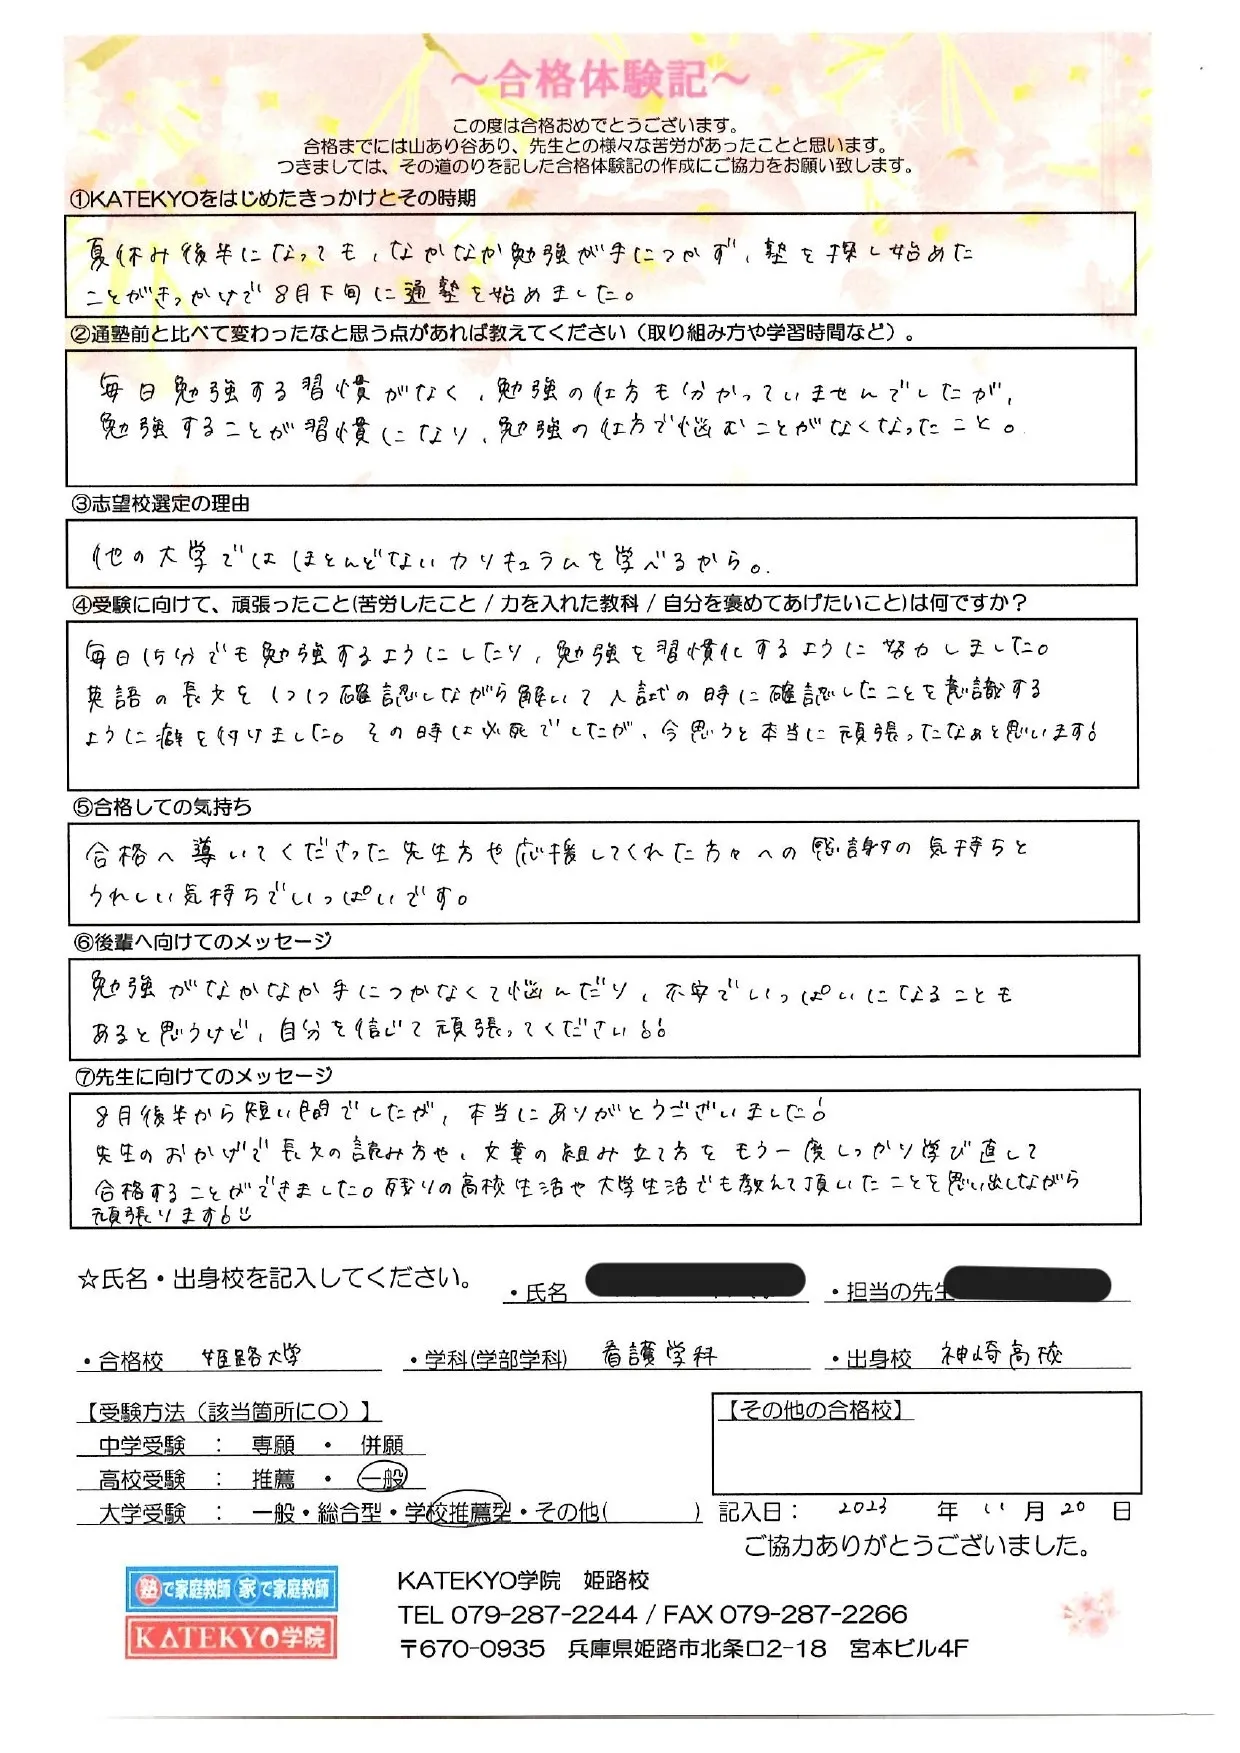 ～合格体験記～
この度は合格おめでとうございます。
合格までには山あり谷あり、先生との様々な苦労があったことと思います。
つきましては、その道のりを記した合格体験記の作成にご協力をお願い致します。
①KATEKYOをはじめたきっかけとその時期
夏休み後半になっても、なかなか勉強が手につかず、塾を探し始めた
ことがきっかけで8月下旬に通塾を始めました。
②通塾前と比べて変わったなと思う点があれば教えてください（取り組み方や学習時間など）。
毎日勉強する習慣がなく、勉強の仕方も分かっていませんでしたが、
勉強することが習慣になり、勉強の仕方で悩むことがなくなったこと。
③志望校選定の理由
他の大学ではほとんどないカリキュラムを学べるから。
④受験に向けて、頑張ったこと(苦労したこと / 力を入れた教科 / 自分を褒めてあげたいこと)は何ですか？
毎日15分でも勉強するようにしたり、勉強を習慣化するように努力しました。
英語の長文を1つ1つ確認しながら解いて入試の時に確認したことを意識する
ように癖を付けました。その時は必死でしたが、今思うと本当に頑張ったなぁと思います!
⑤合格しての気持ち
合格へ導いてくださった先生方や応援してくれた方々への感謝の気持ちと
うれしい気持ちでいっぱいです。
⑥後輩へ向けてのメッセージ
勉強がなかなか手につかなくて悩んだり、不安でいっぱいになることも
あると思うけど、自分を信じて頑張ってください!!
⑦先生に向けてのメッセージ
8月後半から短い間でしたが、本当にありがとうございました!
先生のおかげで長文の読み方や、文章の組み立て方をもう一度しっかり学び直して
合格することができました。残りの高校生活や大学生活でも教えて頂いたことを思い出しながら
頑張ります!
☆氏名・出身校を記入してください。
・氏名 ・担当の先生
・合格校 姫路大学 ・学科(学部学科) 看護学科 ・出身校 神崎高校
【受験方法（該当箇所に○）】 【その他の合格校】
中学受験 ： 専願 ・ 併願
高校受験 ： 推薦 ・ 一般
大学受験 ： 一般・総合型・学校推薦型・その他( ) 記入日： 2023 年 11 月 20 日
ご協力ありがとうございました。
塾で家庭教師 家で家庭教師
KATEKYO学院
KATEKYO学院 姫路校
TEL 079-287-2244 / FAX 079-287-2266
〒670-0935 兵庫県姫路市北条口2-18 宮本ビル4F